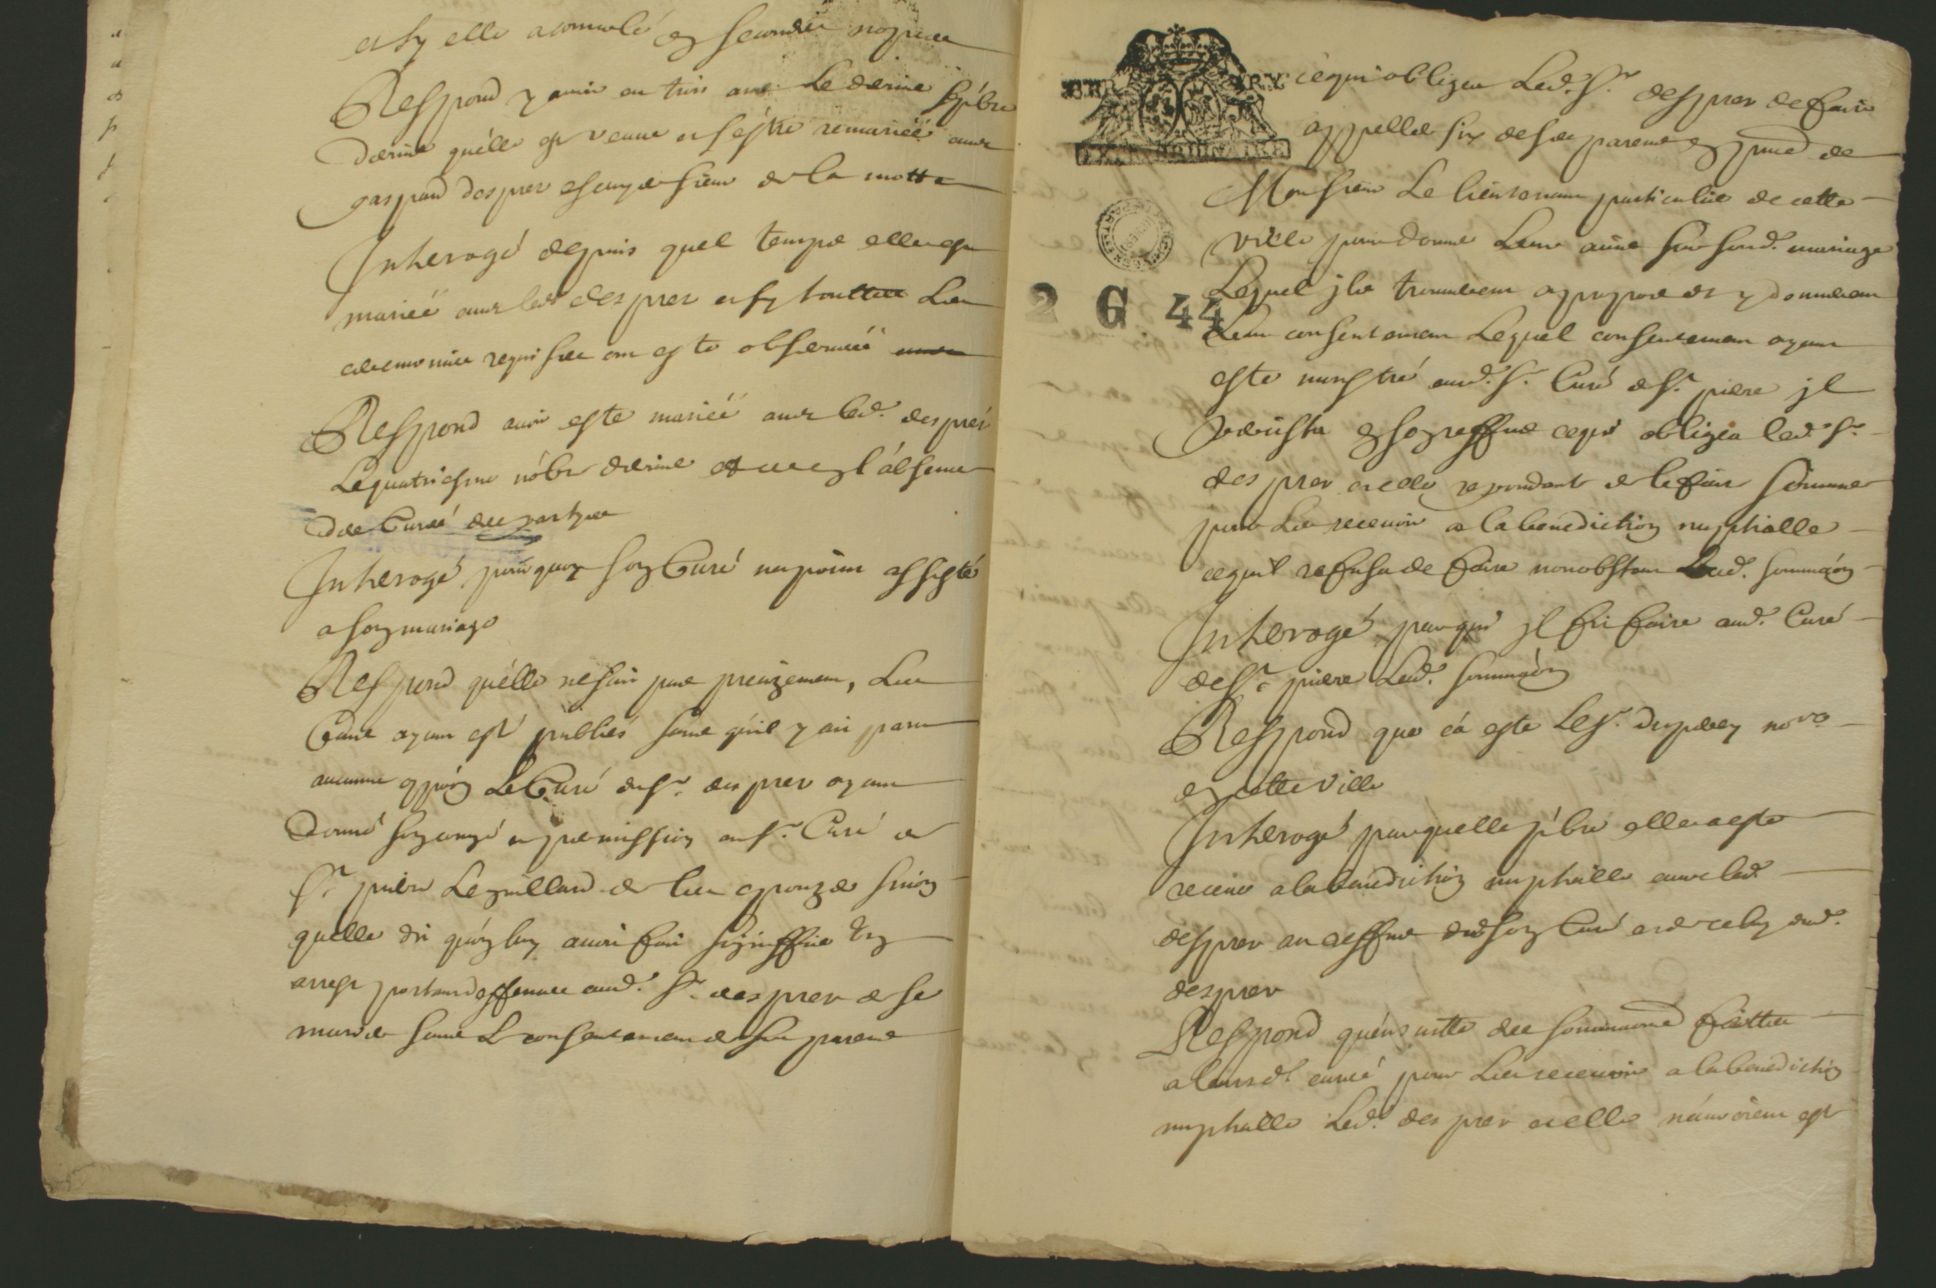 et sy elle a convolé en secondes nopces
Respond y avoir eu trois ans le dernier 7bre
dernier qu'elle est venue et s'estre remariéé avec
gaspard desprer escuyer sieur de la motte
Interogé depuis quel temps elle est
mariéé avec led. desprer et sy touttes les
ceremonies requises ont esté observéés
Respond avoir esté mariéé avec led. desprér
le quatriesme nóbre dernier et en l'absence
des Curéé des partyes
Interogé pourquoy son Curé na point assisté
a son mariage
Respond qu'elle ne scait pas precizement, les
bans ayant esté publiés sans qu'il y ait paru
aucunne oppoon le Curé du sr. desprer ayant
donné son congé et permission au sr. Curé de
st. pierre le guillard de les epouzer sinon
quelle dit qu'on luy avoit fait signiffier un
arrest portant deffences aud. sr. desprer de se
marier sans le consentement de ses parens
BER RY
ce qui obligea led. sr. desprer de faire
appeller six de ses parens en pnce de
Monsieur le lieutenant particulier de cette
ville pour donner leur avis sur sond. mariage
lequel ils trouverent a propos et y donnerent
leur consentement lequel consentement ayant
2 G 44
esté monstré aud. sr. Curé de st. piere il
persista en son reffus ce qui obligea led. sr.
desprer et elle repondante de le faire sommer
pour les recevoir a la benediction nuptialle
ce quil refusa de faire nonobstant lad. sommaon
Interogé par qui il fit faire aud. Curé
de st. piere lad. sommaon
Respond que ca esté le sr. nore
en cette ville
Interogé par quelle pbre elle a esté
receue a la benediction nuptialle avec led.
desprer au reffus dud son Curé et de celuy dud.
desprer
Respond qu'ensuitte des sommaons faittes
a leursd. curéé pour les recevoir a la benediction
nuptialle led. desprer et elle n'auroient esté